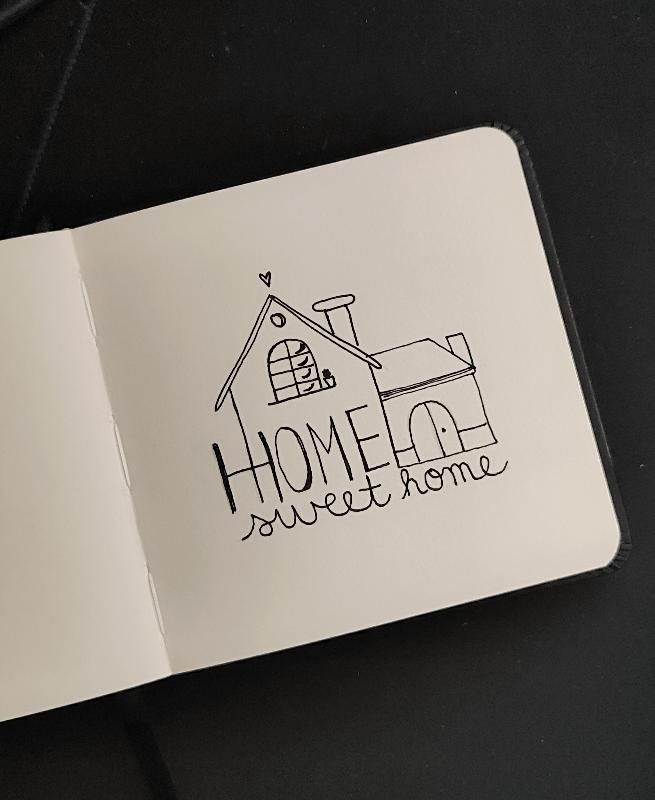 HOME
sweet home